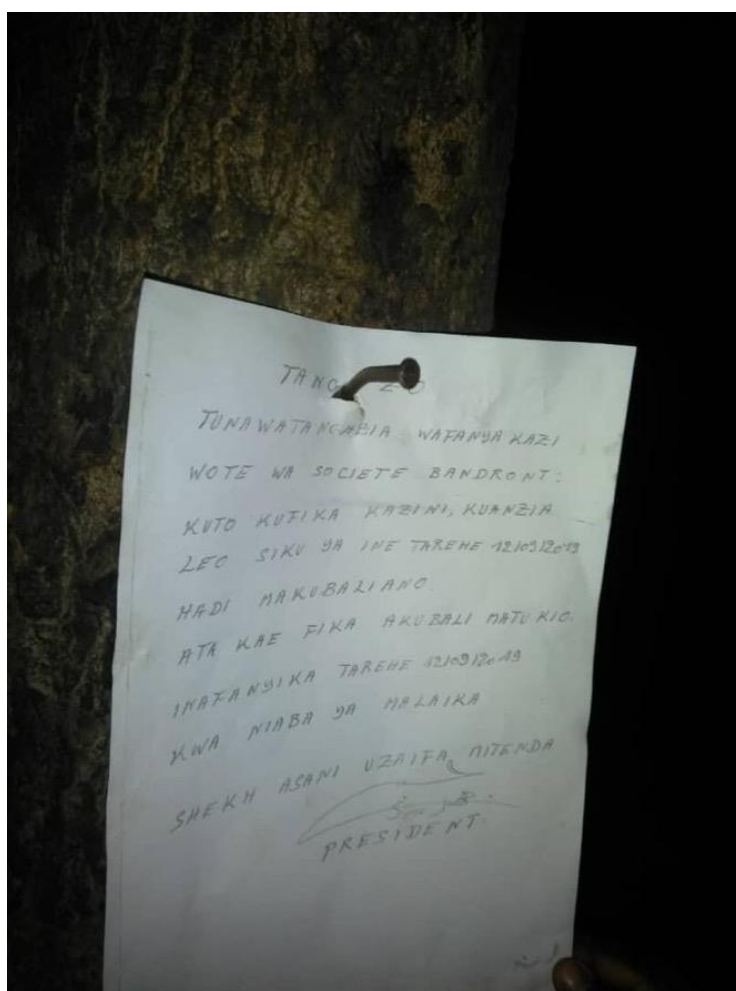 TUNAWATANGAZIA WAFANYAKAZI
WOTE WA SOCIETE BANDRONT:
KUTO KUFIKA KAZINI, KUANZIA
LEO SIKU YA INE TAREHE 12/09/2019
HADI MAKUBALIANO.
ATA KAE FIKA AKUBALI MATUKIO.
INAFANYIKA TAREHE 12/09/2019
KWA NIABA YA MALAIKA
SHEKH ASANI UZAIFA MITENDA
PRESIDENT